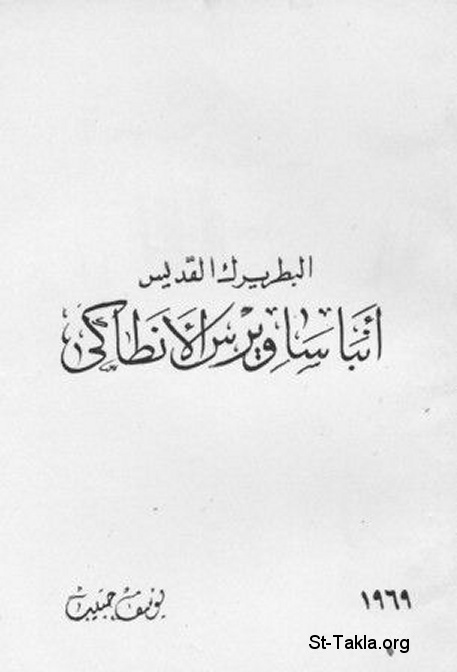 البطريرك القديس
أنبا ساويرس الأنطاكى
يوسف حبيب
١٩٦٩
St-Takla.org